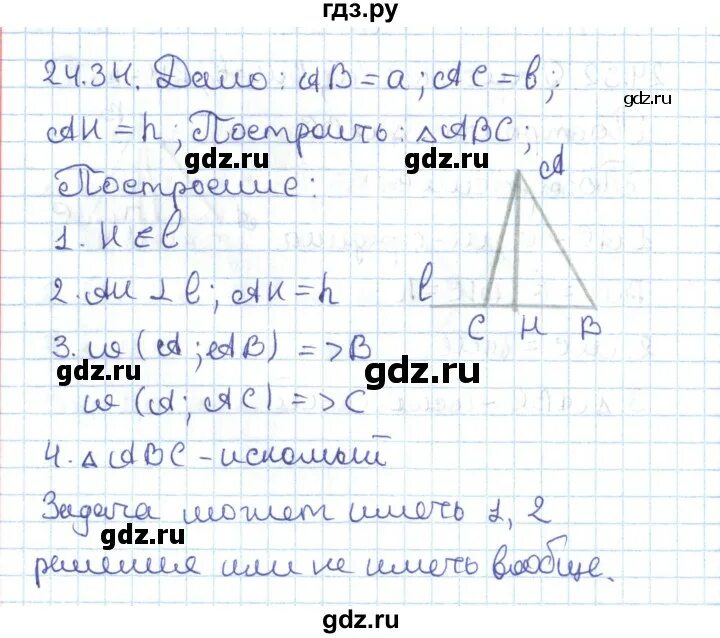 гдз.ру
24.34. Дано: AB = a; AC = b;
gdz.ru
AH = h; Построить: △ABC;
gdz.ru gdz.ru
Построение:
A
1. H ∈ l
2. AH ⊥ l; AH = h
l
C H B
3. w (A; AB) => B
gdz.ru gdz.ru
w (A; AC) => C
4. △ABC – искомый
Задача может иметь 1, 2
gdz.ru gdz.ru
решения или не иметь вообще.
gdz.ru